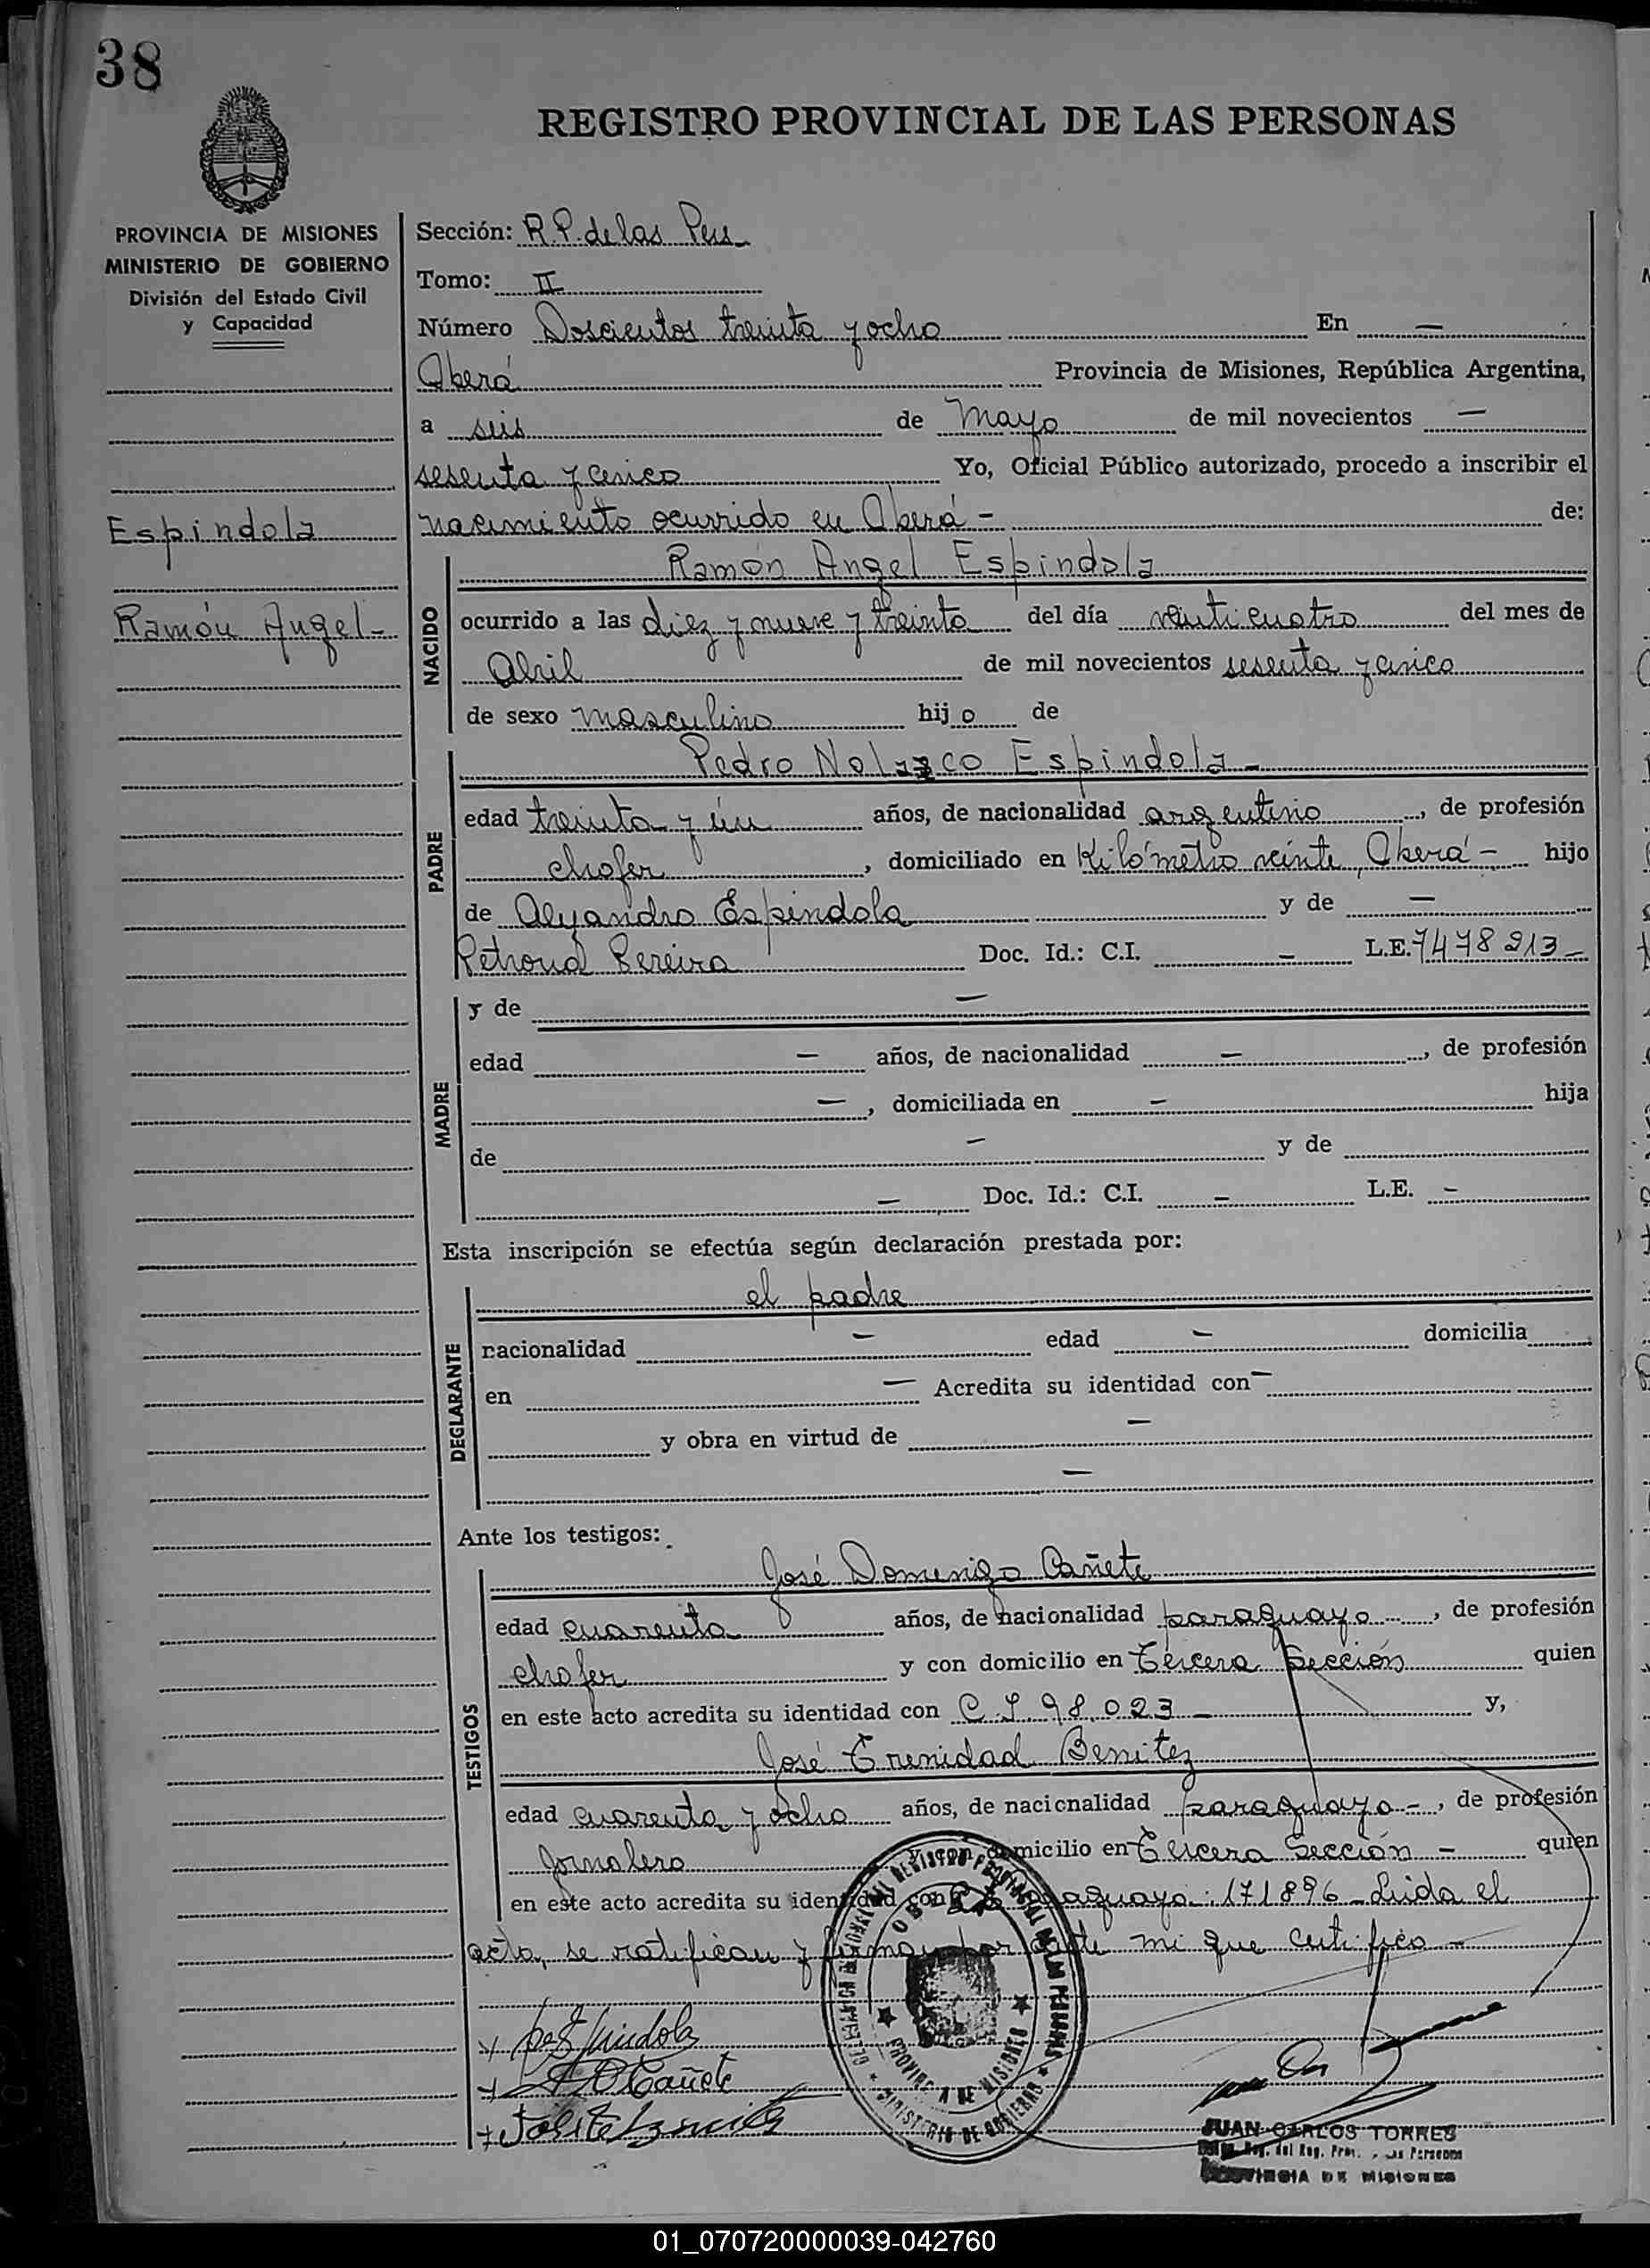 38
REGISTRO PROVINCIAL DE LAS PERSONAS
PROVINCIA DE MISIONES
MINISTERIO DE GOBIERNO
División del Estado Civil
y Capacidad
Espindola
Ramón Angel -
Sección: R.P. de las Pers
Tomo: II
Número Doscientos treinta y ocho En —
Oberá Provincia de Misiones, República Argentina,
a seis de Mayo de mil novecientos —
sesenta y cinco Yo, Oficial Público autorizado, procedo a inscribir el
nacimiento ocurrido en Oberá - de:
NACIDO
Ramón Angel Espindola
ocurrido a las diez y nueve y treinta del día veinticuatro del mes de
Abril de mil novecientos sesenta y cinco
de sexo masculino hijo de
PADRE
Pedro Nolasco Espindola -
edad treinta y un años, de nacionalidad argentino, de profesión
chofer, domiciliado en Kilómetro veinte, Oberá - hijo
de Alejandro Espindola y de —
Petrona Pereira Doc. Id.: C.I. — L.E. 7478913 -
MADRE
y de —
edad — años, de nacionalidad —, de profesión
—, domiciliada en — hija
de — y de
— Doc. Id.: C.I. — L.E. —
Esta inscripción se efectúa según declaración prestada por:
DECLARANTE
el padre
nacionalidad — edad — domicilia
en — Acredita su identidad con —
y obra en virtud de —
—
Ante los testigos:
TESTIGOS
José Domingo Cañete
edad cuarenta años, de nacionalidad paraguayo, de profesión
chofer y con domicilio en Tercera Sección quien
en este acto acredita su identidad con C.I 98.023 — y,
José Trenidad Benitez
edad cuarenta y ocho años, de nacionalidad paraguayo -, de profesión
Jornalero y con domicilio en Tercera Sección - quien
en este acto acredita su identidad con paraguaya 171896 - Leida el
acta, se ratifican y firman por ante mi que certifico -
Espindola
Cañete
JUAN CARLOS TORRES
del Reg. Prov. Personas
PROVINCIA DE MISIONES
REGISTRO PROVINCIAL DE LAS PERSONAS
OBERA
PROVINCIA DE MISIONES
MINISTERIO DE GOBIERNO
01_070720000039-042760